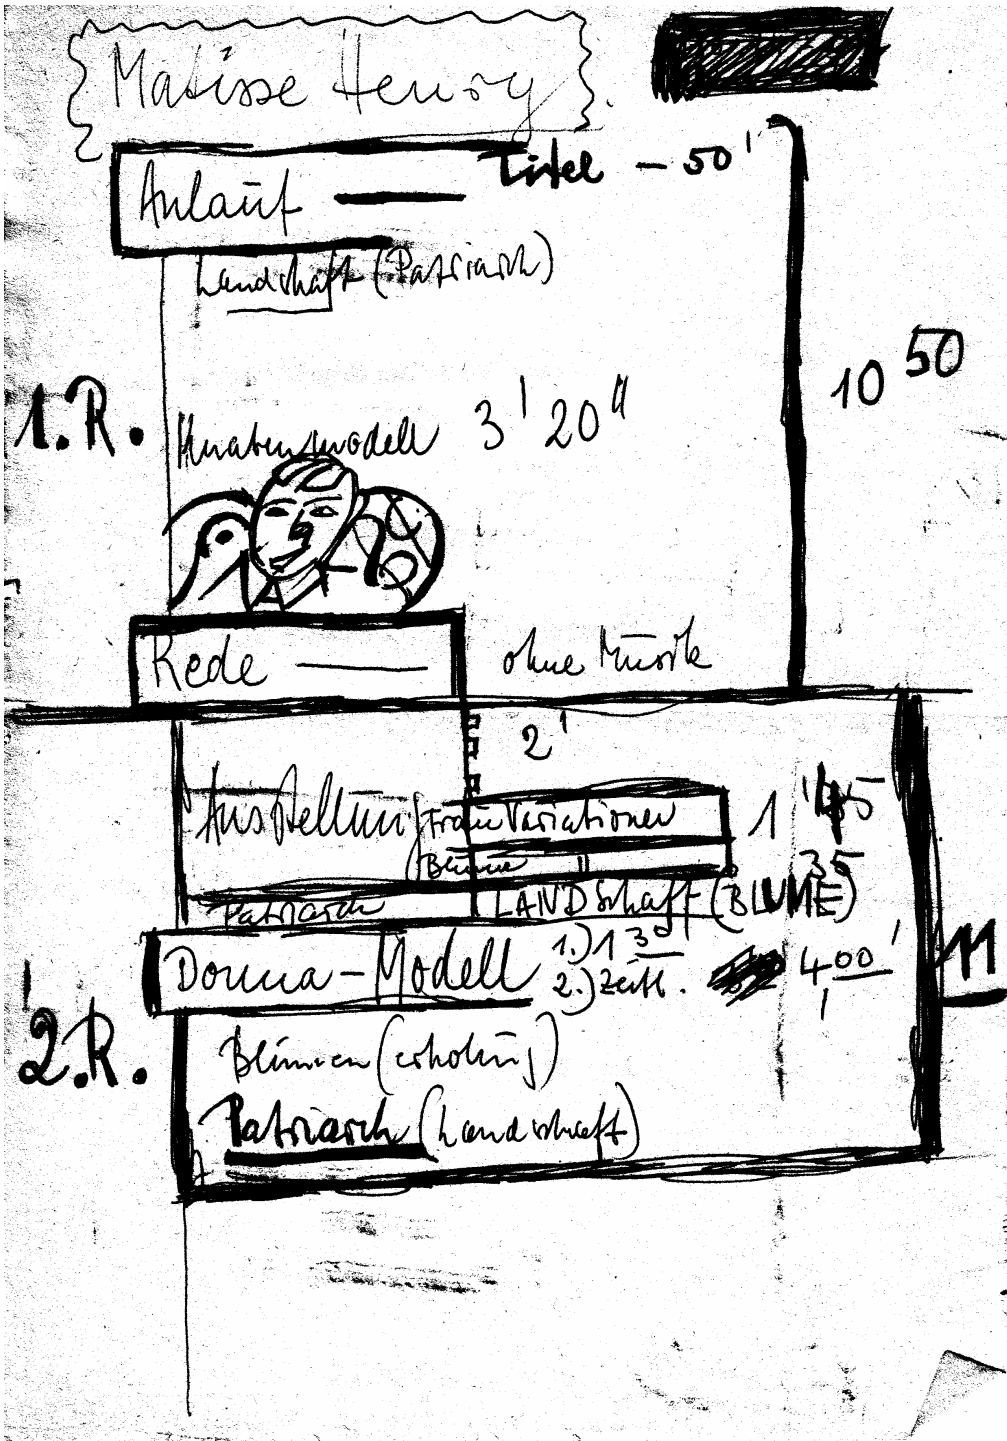 Matisse Henry
Titel - 50'
Anlauf —
Landschaft (Patriarch)
10 50
1.R. Knabenmodell 3' 20"
Rede — ohne Musik
2'
Ausstellung Frau Variationen 1' 45
Blume 35
Patriarch LANDSchaft (BLUME)
Donna-Modell 1.) 1 30
2.) Zeitl. 4 00' 11
2.R. Blumen (erholung)
Patriarch (Landschaft)